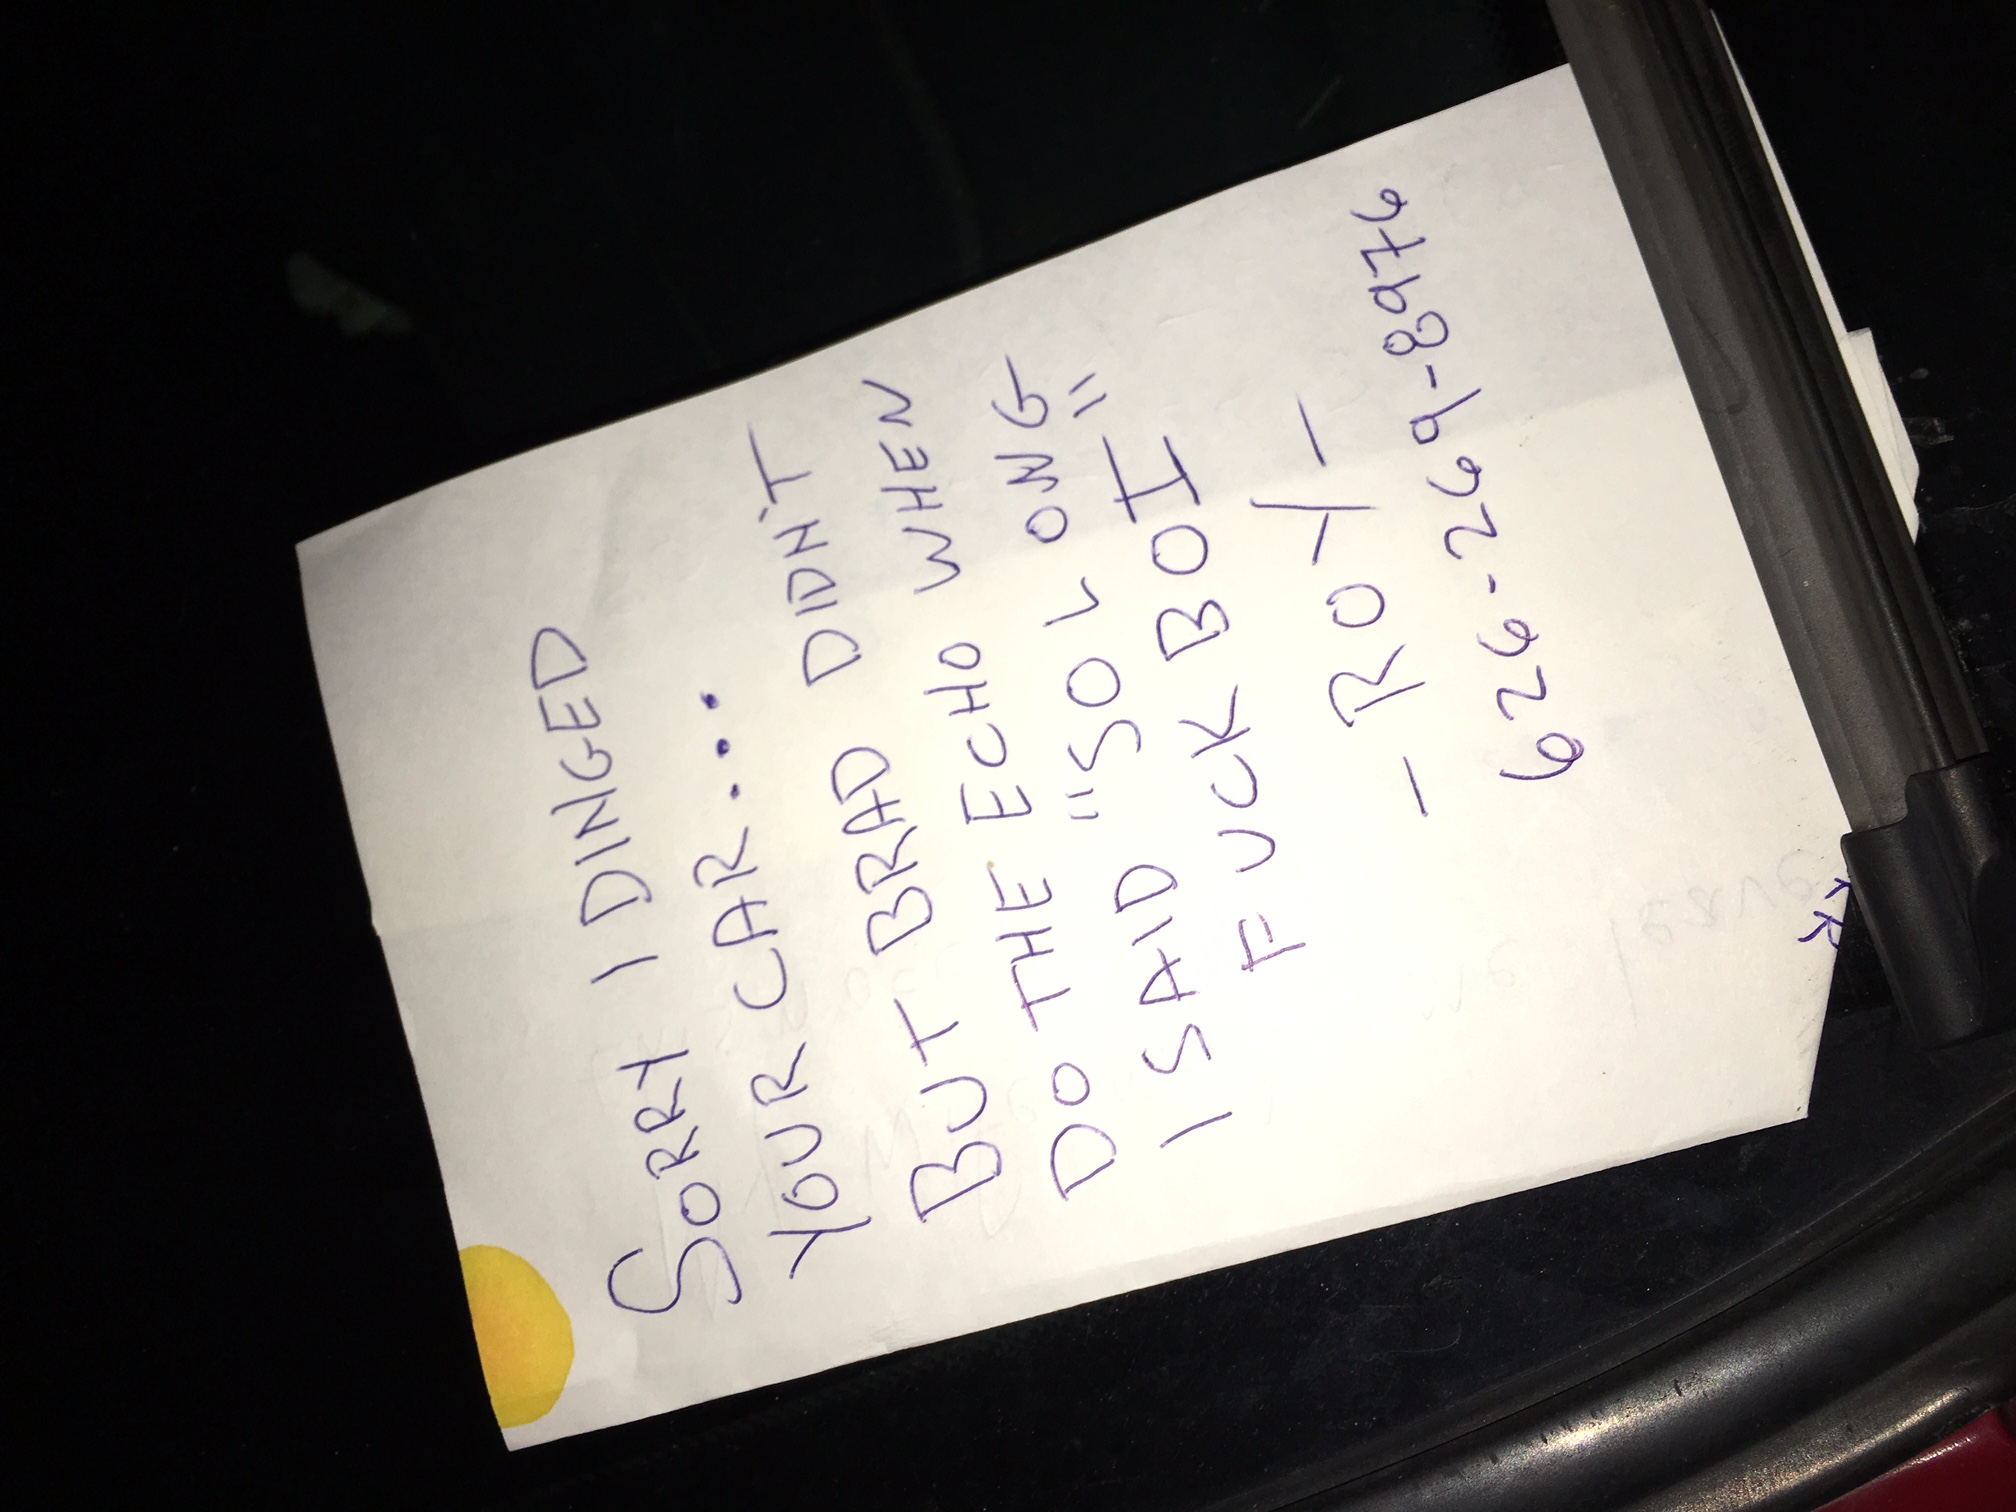 SORRY I DINGED
YOUR CAR...
BUT BRAD DIDN'T
DO THE ECHO WHEN
I SAID "SOL OMG
FUCK BOI"
- ROY -
626-269-8976